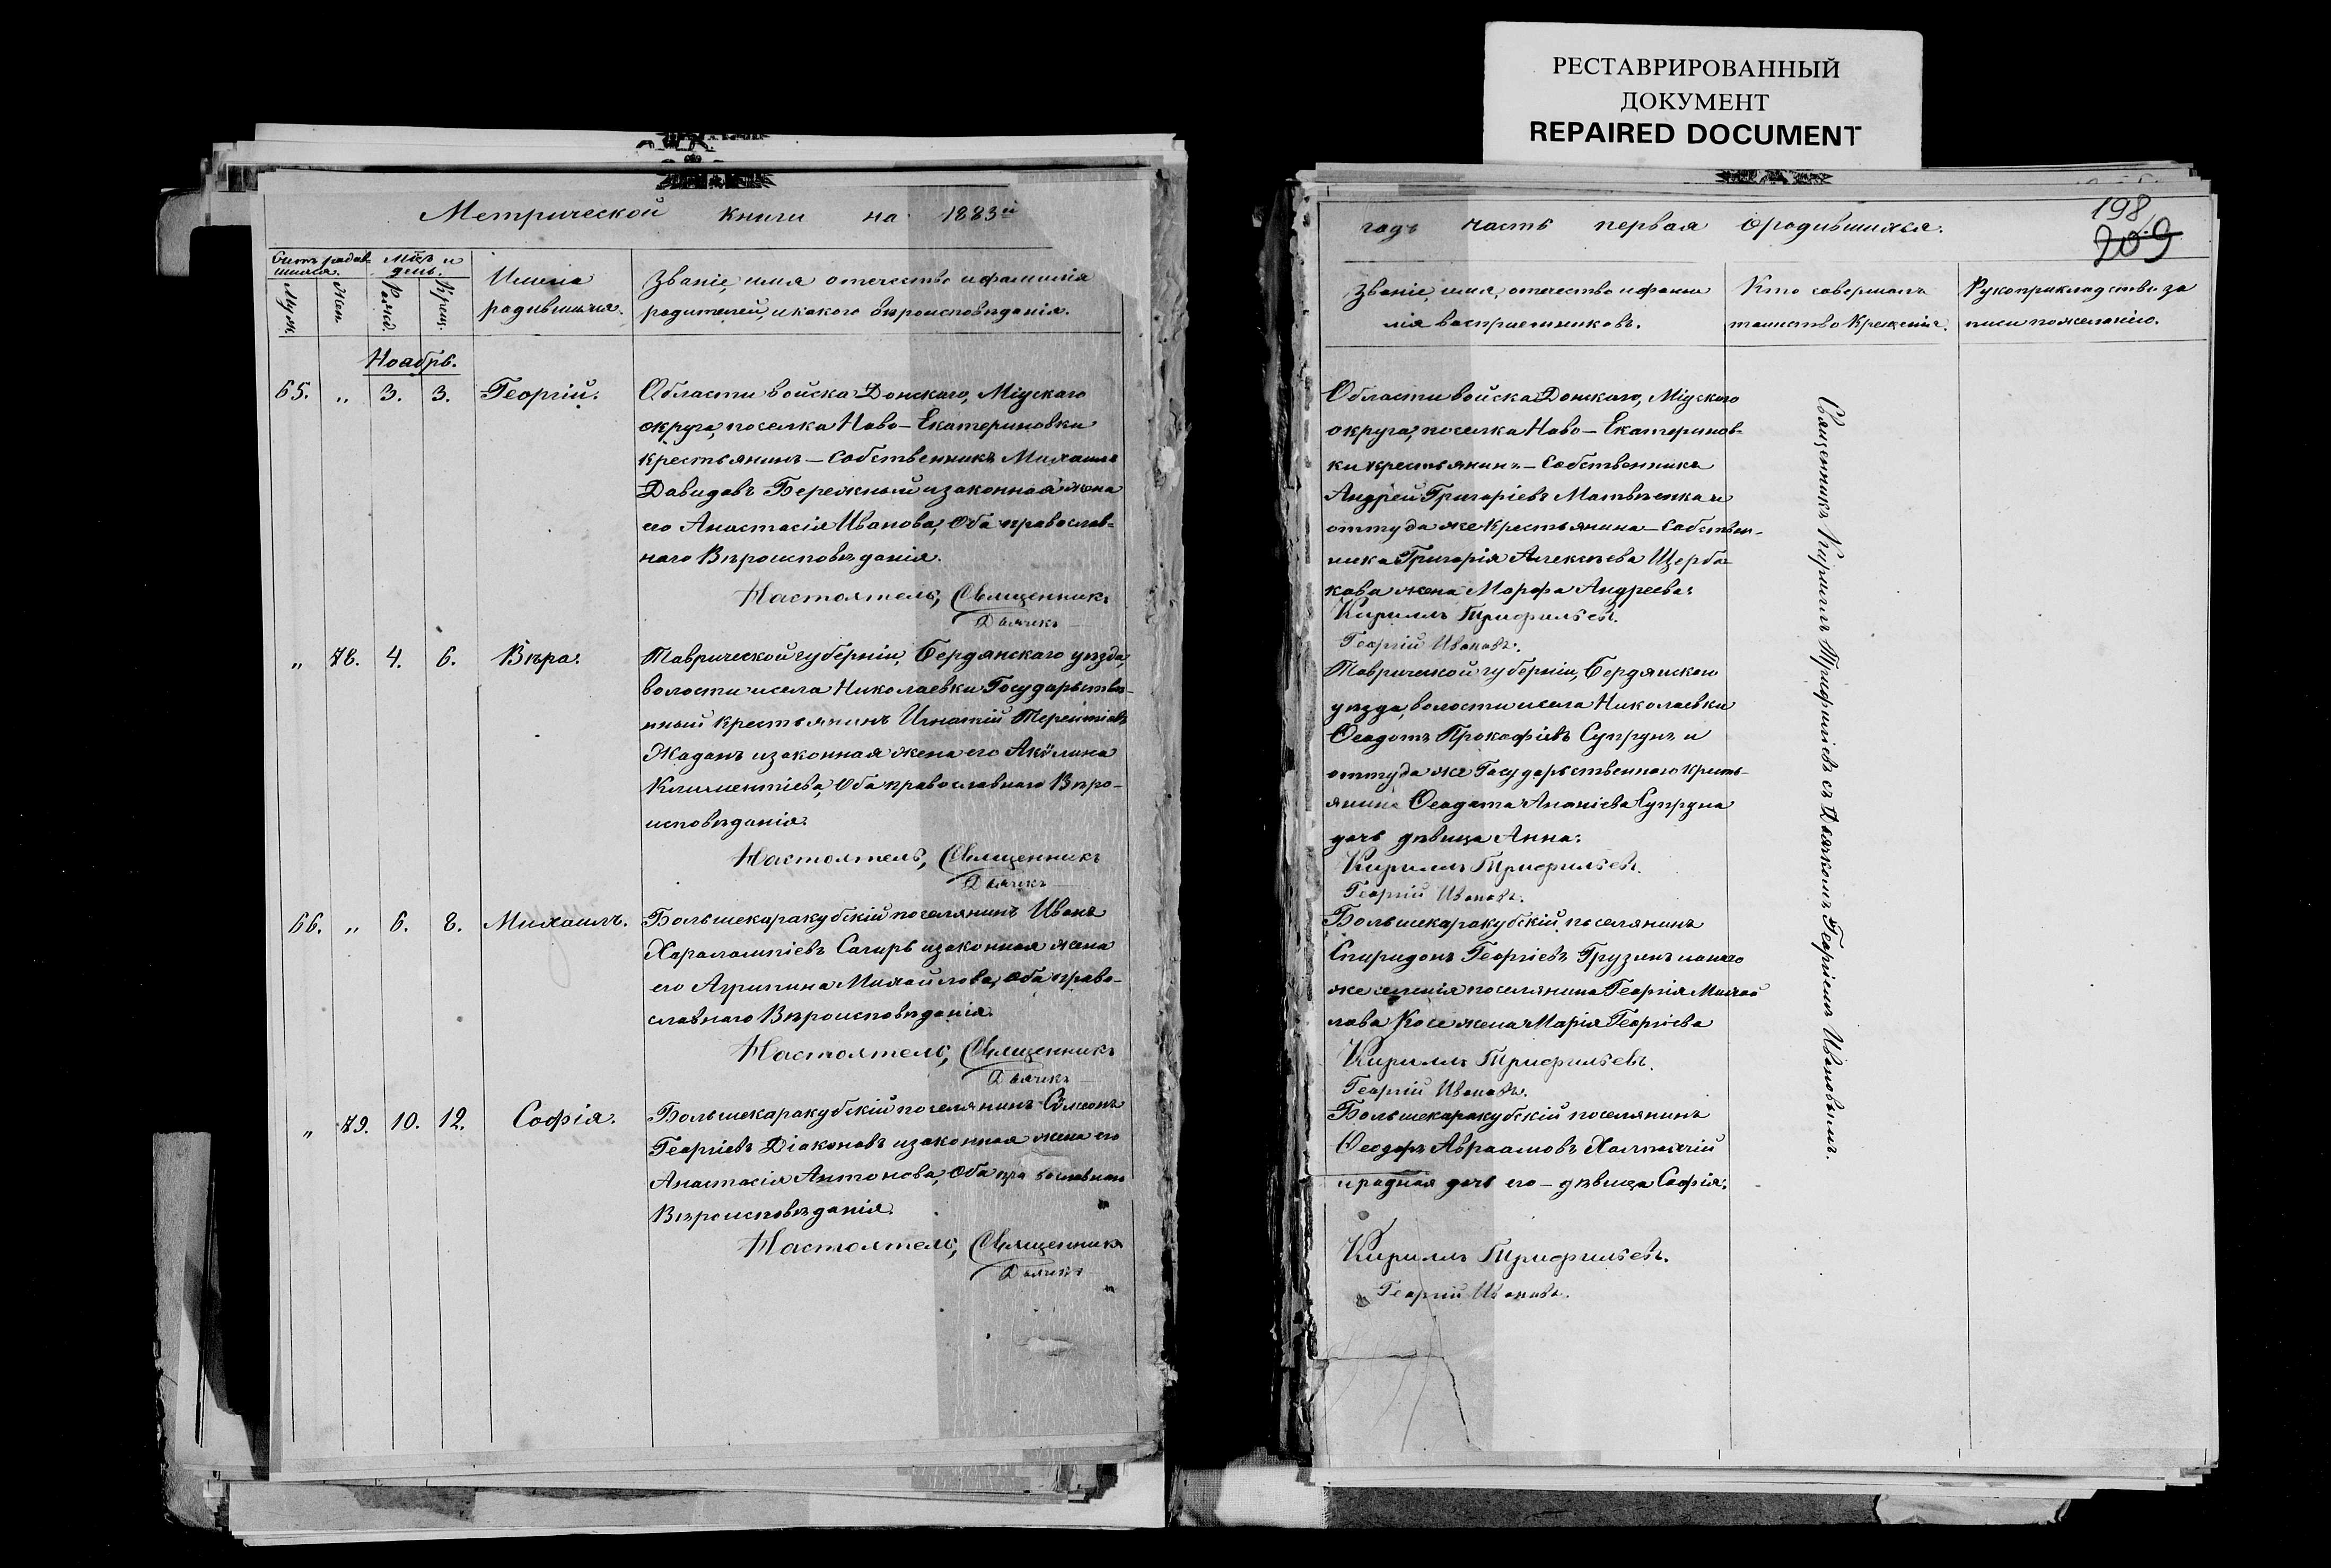 РЕСТАВРИРОВАННЫЙ
ДОКУМЕНТ
REPAIRED DOCUMENT
Метрической книги на 1883й
Счетъ родив-
шихся.
Муж.
Жен.
Мѣс. и
день.
Рожд.
Крещ.
Имена
родившихся.
Званіе, имя отечество и фамилія
родителей, и какого вѣроисповѣданія.
Ноябрь.
65. „ 3. 3. Георгій.
Области войска Донскаго, Міускаго
округа, поселка Ново-Екатериновки
крестьянинъ-собственникъ Михаилъ
Давидовъ Бережный и законная жена
его Анастасія Иванова, оба православ-
наго Вѣроисповѣданія.
Настоятель, Священникъ
Дьячекъ
„ 78. 4. 6. Вѣра.
Таврической губерніи, Бердянскаго уѣзда,
волости и села Николаевки Государствен-
нный крестьянинъ Игнатій Терентіевъ
Жаданъ и законная жена его Акулина
Климентіева, оба православнаго Вѣро-
исповѣданія.
Настоятель, Священникъ
Дьячекъ
66. „ 6. 8. Михаилъ.
Большекаракубскій поселянинъ Иванъ
Харалампіевъ Сагиръ и законная жена
его Агрипина Михайлова, оба право-
славнаго Вѣроисповѣданія.
Настоятель, Священникъ
Дьячекъ
„ 79. 10. 12. Софія.
Большекаракубскій поселянинъ Симеонъ
Георгіевъ Діаконовъ и законная жена его
Анастасія Антонова, оба православнаго
Вѣроисповѣданія.
Настоятель, Священникъ
Дьячекъ
годъ часть первая о родившихся.
198
209
Званіе, имя, отечество и фами
лія воспріемниковъ.
Кто совершалъ
таинство Крещенія.
Рукоприкладство за
писи по желанію.
Области войска Донскаго, Міускаго
округа, поселка Ново-Екатеринов-
ки крестьянинъ-собственникъ
Андрей Григоріевъ Матвѣенко и
оттуда же крестьянина-собствен-
ника Григорія Алексѣева Щерба-
кова жена Марфа Андреева:
Кириллъ Трифильевъ.
Георгій Ивановъ.
Таврической губерніи, Бердянскаго
уѣзда, волости и села Николаевки
Ѳеодотъ Прокофіевъ Супрунъ и
оттуда же Государственнаго кресть-
янина Ѳеодота Ананіева Супруна
дочь дѣвица Анна:
Кириллъ Трифильевъ.
Георгій Ивановъ.
Большекаракубскій поселянинъ
Спиридонъ Георгіевъ Грузинъ и онаго
же селенія поселянина Георгія Михай
лова Косе жена Марія Георгіева
Кириллъ Трифильевъ.
Георгій Ивановъ.
Большекаракубскій поселянинъ
Ѳеодоръ Авраамовъ
и родная дочь его - дѣвица Софія:
Кириллъ Трифильевъ.
Георгій Ивановъ.
Священникъ Кириллъ Трифиліевъ съ Дьячкомъ Георгіемъ Ивановымъ.